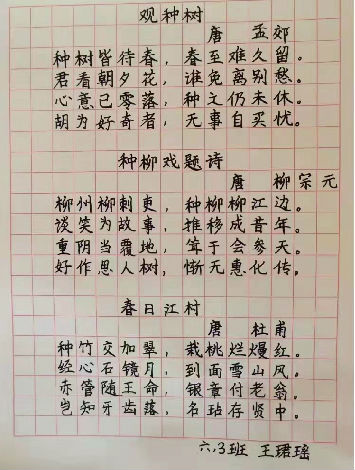 观种树
唐 孟郊
种树皆待春，春至难久留。
君看朝夕花，谁免离别愁。
心意已零落，种文仍未休。
胡为好奇者，无事自买忧。
种柳戏题诗
唐 柳宗元
柳州柳刺吏，种柳柳江边。
谈笑为故事，推移成昔年。
重阴当覆地，耸于会参天。
好作思人树，惭无惠化传。
春日江村
唐 杜甫
种竹交加翠，栽桃烂熳红。
经心石镜月，到面雪山风。
赤管随王命，银章付老翁。
岂知牙齿落，名玷存贤中。
六.3班 王珺瑶